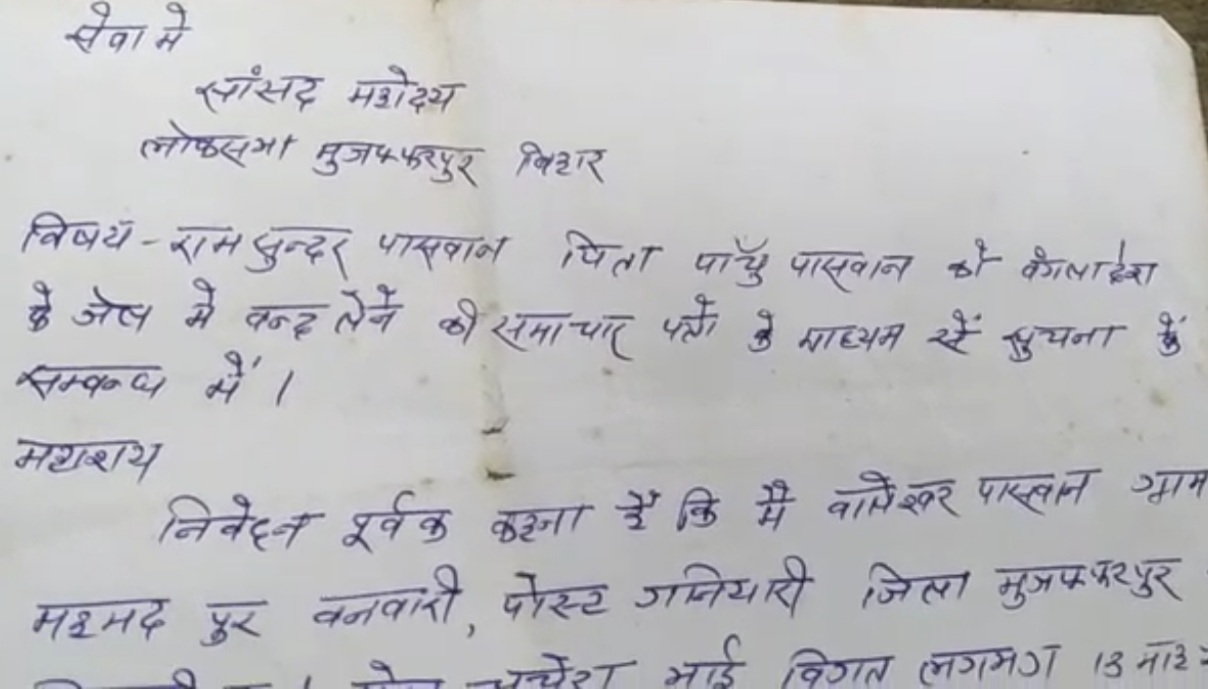 सेवा मे
सांसद महोदय
लोकसभा मुजफ्फरपुर बिहार
विषय - रामसुन्दर पासवान पिता पाँचु पासवान को बंगलादेश
के जेल मे बन्द लेने की समाचार पत्रो के माध्यम सें सुचना कें
सम्बन्ध में ।
महाशय
निवेदन पूर्वक कहना है कि मै पासवान ग्राम
महमद पुर बनवारी, पोस्ट गनियारी जिला मुजफ्फरपुर
चचेरा भाई विगत लगभग 13 माह